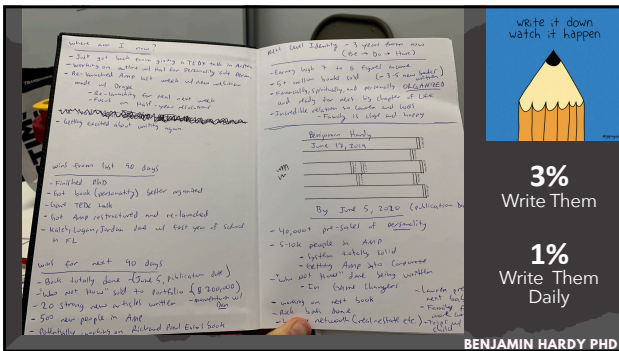 where am I now?
- Just got back from giving a TEDx talk in
- working on outline and for Personality
- Re-launched Amp last week w/ new webinar
made w/ Draye
- Re-launching for real next week
- Focus on half-year
- Getting excited about writing again
wins from last 90 days
- Finished PhD
- Got book (personality) better organized
- Gave TEDx talk
- Got Amp restructured and re-launched
- Kaleb, Logan, Jordan done w/ first year of school
in FL
wins for next 90 days
- Book totally done (June 5, publication date)
- "Who Not How" sold to Portfolio ($200,000)
- 20 strong new articles written - momentum w/
Dan
- 500 new people in AMP
- Potentially working on Richard Paul Evans book
Next Level Identity - 3 years from now
(Be → Do → Have)
- Earning high 7 to 8 figure income
- 5+ million books sold (- 3-5 new books written)
- Financially, Spiritually, and personally ORGANIZED
and ready for next big chapter of life
- Incredible relation w/ Lauren and kids
- Family is close and happy
Benjamin Hardy
June 18, 2019
By June 5, 2020 (publication
- 40,000+ pre-sales of personality
- 5-10k people in AMP
- System totally solid
- Getting Amp into corporate
- "Who Not How" done being written
- Ten Game Changers
- working on next book
- Rich Book done
- networth (real-estate etc.)
- Lauren
next
- Family
child
write it down
watch it happen
3%
Write Them
1%
Write Them
Daily
BENJAMIN HARDY PHD